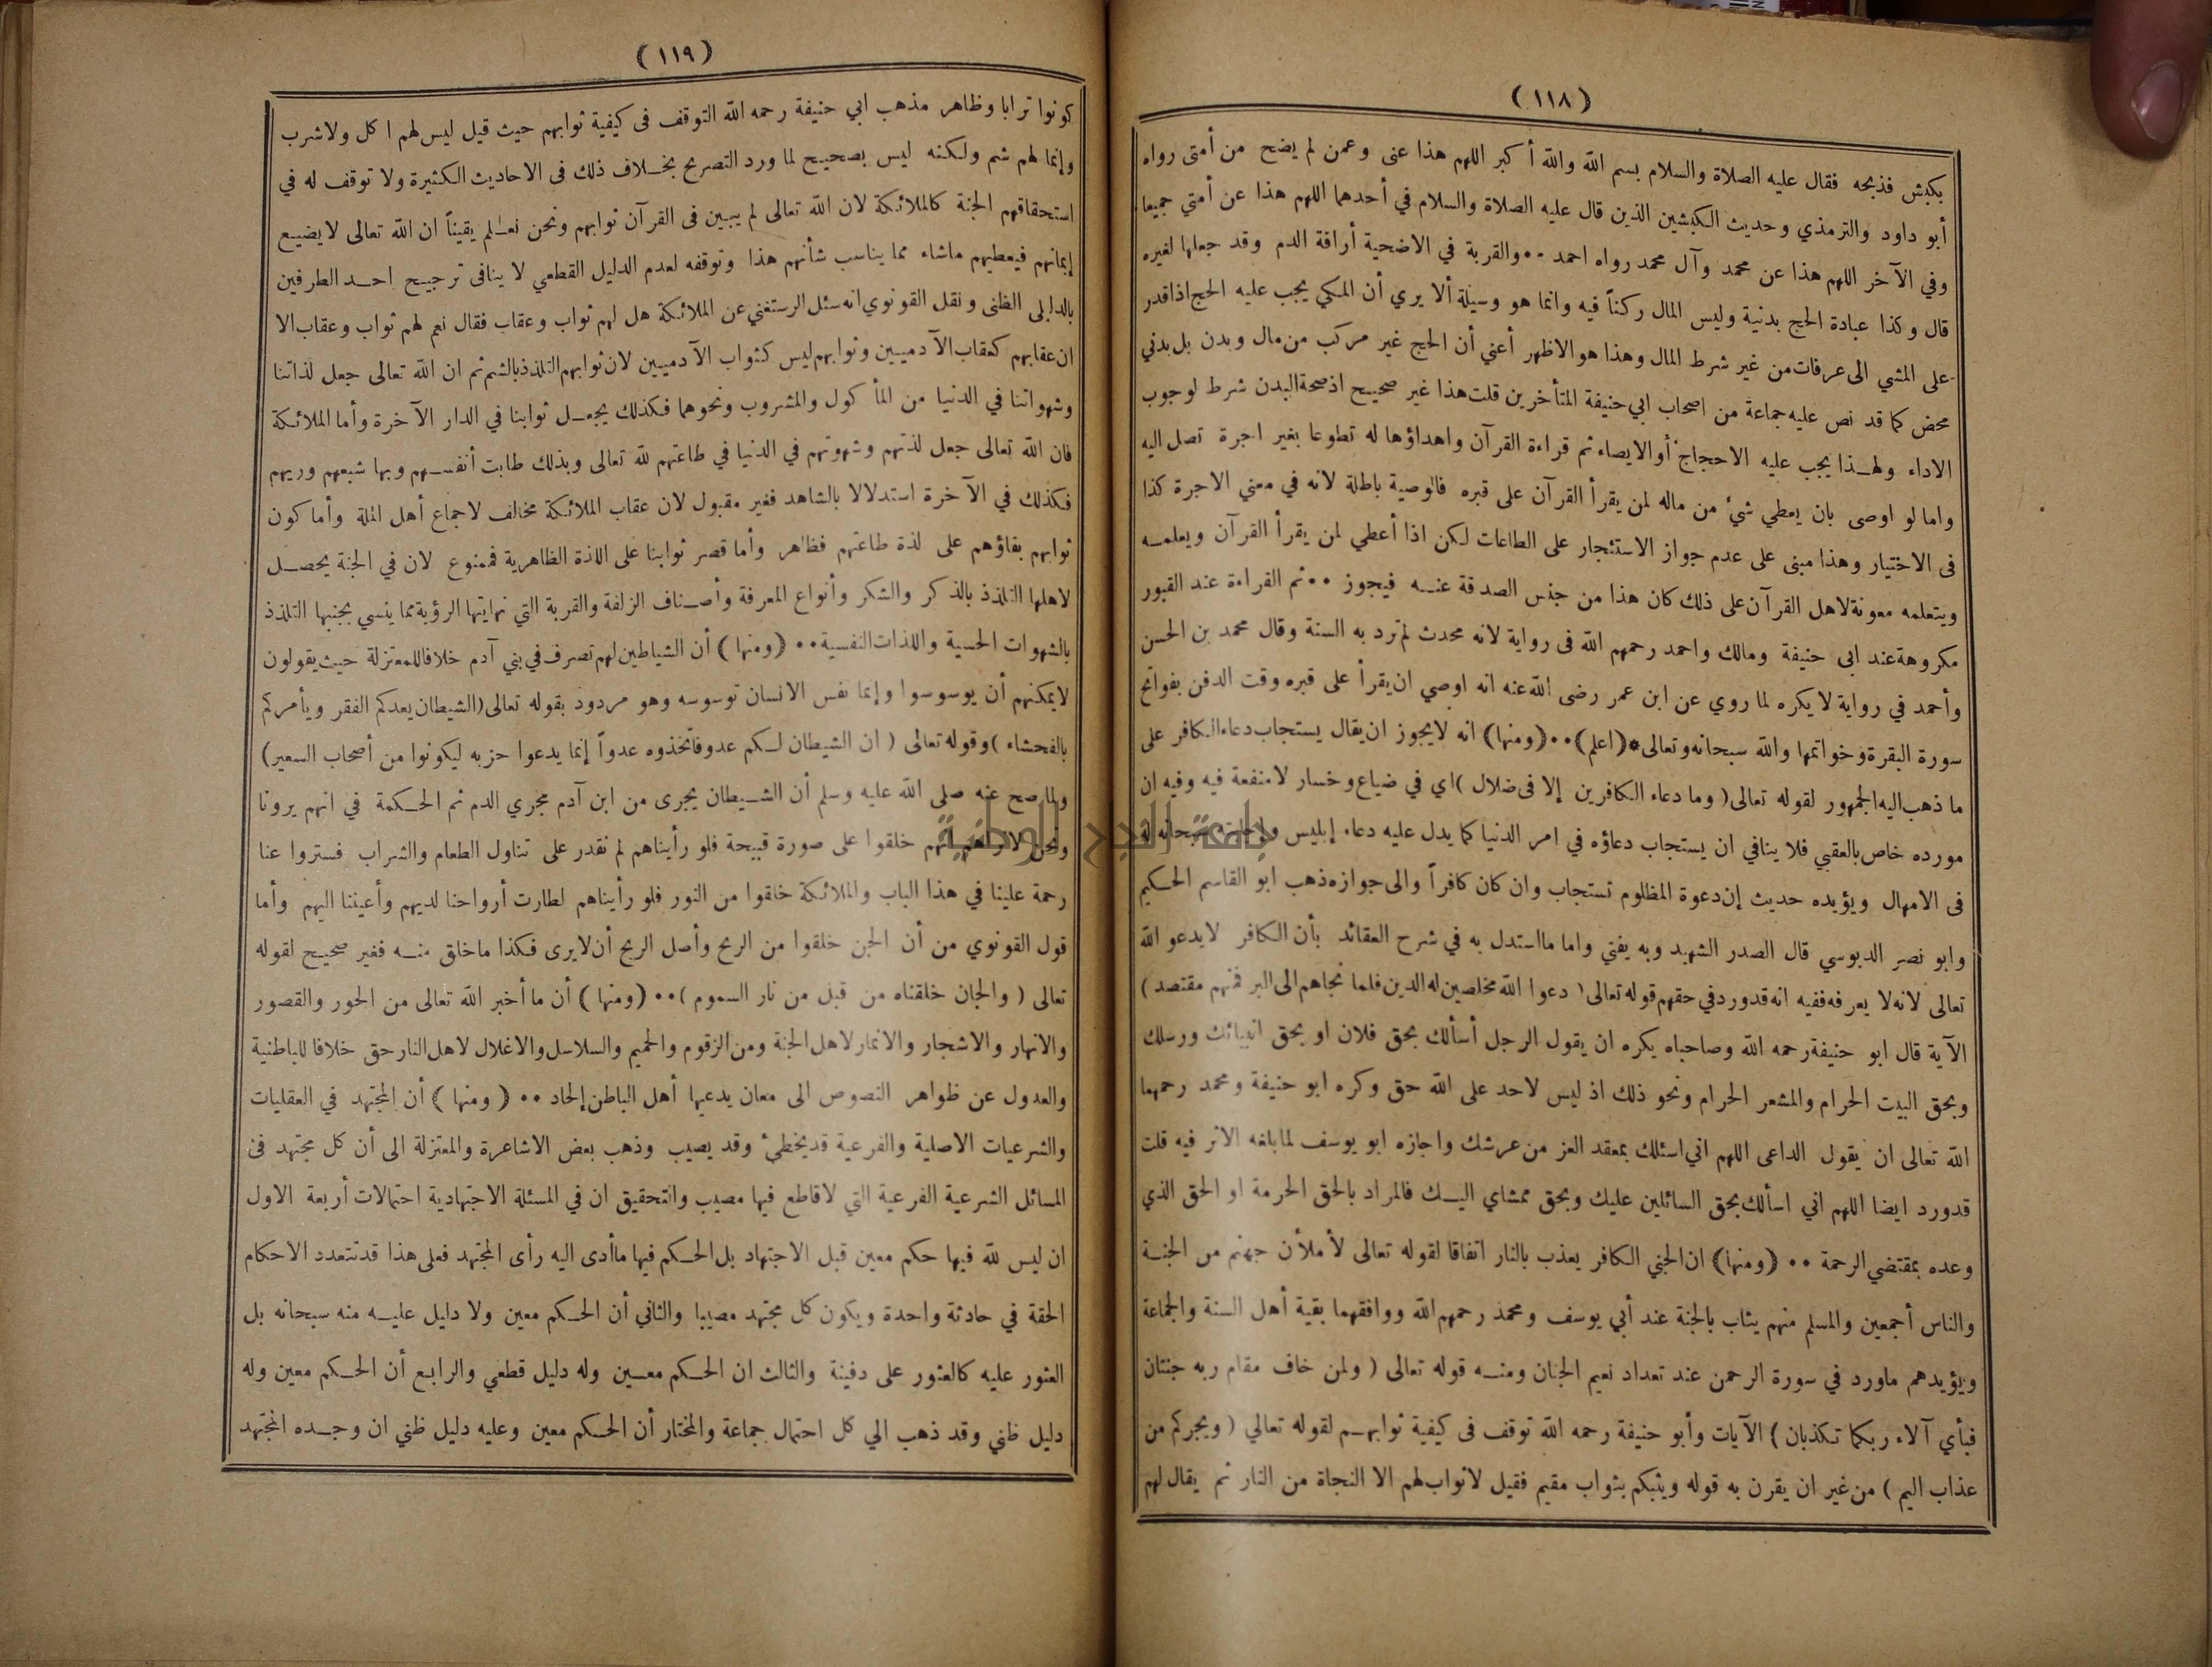 (١١٨)
بكبش فذبحه فقال عليه الصلاة والسلام بسم الله والله أكبر اللهم هذا عنى وعمن لم يضح من أمتى رواه
أبو داود والترمذي وحديث الكبشين الذين قال عليه الصلاة والسلام في أحدهما اللهم هذا عن أمتي جميعا
وفي الآخر اللهم هذا عن محمد وآل محمد رواه احمد ٠٠ والقربة في الاضحية أراقة الدم وقد جعلها لغيره
قال وكذا عبادة الحج بدنية وليس المال ركناً فيه وانما هو وسيلة ألا يري أن المكي يجب عليه الحج اذا قدر
على المشي الى عرفات من غير شرط المال وهذا هو الاظهر أعني أن الحج غير مركب من مال وبدن بل بدني
محض كما قد نص عليه جماعة من اصحاب ابي حنيفة المتأخرين قلت هذا غير صحيح اذ صحة البدن شرط لوجوب
الاداء ولهذا يجب عليه الاحجاج أو الايصاء ثم قراءة القرآن واهداؤها له تطوعا بغير اجرة تصل اليه
واما لو اوصى بان يعطي شئ من ماله لمن يقرأ القرآن على قبره فالوصية باطلة لانه في معني الاجرة كذا
فى الاختيار وهذا مبنى على عدم جواز الاستئجار على الطاعات لكن اذا أعطي لمن يقرأ القرآن ويعلمه
ويتعلمه معونة لاهل القرآن على ذلك كان هذا من جنس الصدقة عنه فيجوز ٠٠ ثم القراءة عند القبور
مكروهة عند ابى حنيفة ومالك واحمد رحمهم الله فى رواية لانه محدث لم ترد به السنة وقال محمد بن الحسن
وأحمد في رواية لا يكره لما روي عن ابن عمر رضى الله عنه انه اوصي ان يقرأ على قبره وقت الدفن بفواتح
سورة البقرة وخواتمها والله سبحانه وتعالى*(اعلم)٠٠(ومنها) انه لا يجوز ان يقال يستجاب دعاء الكافر على
ما ذهب اليه الجمهور لقوله تعالى (وما دعاء الكافرين إلا فى ضلال) اي في ضياع وخسار لا منفعة فيه وفيه ان
مورده خاص بالعقبي فلا ينافي ان يستجاب دعاؤه في امر الدنيا كما يدل عليه دعاء إبليس وإجابته سبحانه له
فى الامهال ويؤيده حديث إن دعوة المظلوم تستجاب وان كان كافراً والى جوازه ذهب ابو القاسم الحكيم
وابو نصر الدبوسي قال الصدر الشهيد وبه يفتي واما ما استدل به في شرح العقائد بأن الكافر لا يدعو الله
تعالى لانه لا يعرفه ففيه انه قد ورد في حقهم قوله تعالى (دعوا الله مخلصين له الدين فلما نجاهم الى البر فمنهم مقتصد)
الآية قال ابو حنيفة رحمه الله وصاحباه يكره ان يقول الرجل أسألك بحق فلان او بحق انبيائك ورسلك
وبحق البيت الحرام والمشعر الحرام ونحو ذلك اذ ليس لاحد على الله حق وكره ابو حنيفة ومحمد رحمهما
الله تعالى ان يقول الداعى اللهم اني اسئلك بمعقد العز من عرشك واجازه ابو يوسف لما بلغه الاثر فيه قلت
قد ورد ايضا اللهم اني اسألك بحق السائلين عليك وبحق ممشاي اليك فالمراد بالحق الحرمة او الحق الذي
وعده بمقتضي الرحمة ٠٠ (ومنها) ان الجني الكافر يعذب بالنار اتفاقا لقوله تعالى لأملأن جهنم من الجنة
والناس أجمعين والمسلم منهم يثاب بالجنة عند أبي يوسف ومحمد رحمهم الله ووافقهما بقية أهل السنة والجماعة
ويؤيدهم ماورد في سورة الرحمن عند تعداد نعيم الجنان ومنه قوله تعالى (ولمن خاف مقام ربه جنتان
فبأي آلاء ربكما تكذبان) الآيات وأبو حنيفة رحمه الله توقف فى كيفية ثوابهم لقوله تعالي (ويجركم من
عذاب اليم) من غير ان يقرن به قوله ويثبكم بثواب مقيم فقيل لا ثواب لهم الا النجاة من النار ثم يقال لهم
(١١٩)
كونوا ترابا وظاهر مذهب ابي حنيفة رحمه الله التوقف فى كيفية ثوابهم حيث قيل ليس لهم اكل ولا شرب
وإنما لهم شم ولكنه ليس بصحيح لما ورد التصريح بخلاف ذلك فى الاحاديث الكثيرة ولا توقف له في
استحقاقهم الجنة كالملائكة لان الله تعالى لم يبين فى القرآن ثوابهم ونحن نعلم يقيناً ان الله تعالى لا يضيع
إيمانهم فيعطيهم ماشاء مما يناسب شأنهم هذا وتوقفه لعدم الدليل القطعي لا ينافى ترجيح احد الطرفين
بالدليل الظنى ونقل القونوي انه سئل الرستغني عن الملائكة هل لهم ثواب وعقاب فقال نعم لهم ثواب وعقاب الا
ان عقابهم كعقاب الآدميين وثوابهم ليس كثواب الآدميين لان ثوابهم التلذذ بالشم ثم ان الله تعالى جعل لذاتنا
وشهواتنا في الدنيا من المأكول والمشروب ونحوهما فكذلك يجعل ثوابنا في الدار الآخرة وأما الملائكة
فان الله تعالى جعل لذتهم وشهوتهم في الدنيا في طاعتهم لله تعالى وبذلك طابت أنفسهم وبها شبعهم وريهم
فكذلك في الآخرة استدلالا بالشاهد فغير مقبول لان عقاب الملائكة مخالف لاجماع أهل الملة وأما كون
ثوابهم بقاؤهم على لذة طاعتهم فظاهر وأما قصر ثوابنا على اللذة الظاهرية فممنوع لان في الجنة يحصل
لاهلها التلذذ بالذكر والشكر وأنواع المعرفة وأصناف الزلفة والقربة التي نهايتها الرؤية مما ينسي بجنبها التلذذ
بالشهوات الحسية واللذات النفسية ٠٠ (ومنها) أن الشياطين لهم تصرف في بني آدم خلافا للمعتزلة حيث يقولون
لا يمكنهم أن يوسوسوا وإنما نفس الانسان توسوسه وهو مردود بقوله تعالى (الشيطان يعدكم الفقر ويأمركم
بالفحشاء) وقوله تعالى (ان الشيطان لكم عدو فاتخذوه عدواً إنما يدعوا حزبه ليكونوا من أصحاب السعير)
ولما صح عنه صلى الله عليه وسلم أن الشيطان يجرى من ابن آدم مجري الدم ثم الحكمة في انهم يرونا
ونحن لا نراهم أنهم خلقوا على صورة قبيحة فلو رأيناهم لم نقدر على تناول الطعام والشراب فستروا عنا
رحمة علينا في هذا الباب والملائكة خلقوا من النور فلو رأيناهم لطارت أرواحنا لديهم وأعيننا اليهم وأما
قول القونوي من أن الجن خلقوا من الريح وأصل الريح أن لا يرى فكذا ما خلق منه فغير صحيح لقوله
تعالى (والجان خلقناه من قبل من نار السموم) ٠٠ (ومنها) أن ما أخبر الله تعالى من الحور والقصور
والانهار والاشجار والاثمار لاهل الجنة ومن الزقوم والحميم والسلاسل والاغلال لاهل النار حق خلافا للباطنية
والعدول عن ظواهر النصوص الى معان يدعيها أهل الباطن إلحاد ٠٠ (ومنها) أن المجتهد في العقليات
والشرعيات الاصلية والفرعية قد يخطئ وقد يصيب وذهب بعض الاشاعرة والمعتزلة الى أن كل مجتهد فى
المسائل الشرعية الفرعية التي لا قاطع فيها مصيب والتحقيق ان في المسئلة الاجتهادية احتمالات أربعة الاول
ان ليس لله فيها حكم معين قبل الاجتهاد بل الحكم فيها ما أدى اليه رأى المجتهد فعلى هذا قد تتعدد الاحكام
الحقة في حادثة واحدة ويكون كل مجتهد مصيبا والثاني أن الحكم معين ولا دليل عليه منه سبحانه بل
العثور عليه كالعثور على دفينة والثالث ان الحكم معين وله دليل قطعي والرابع أن الحكم معين وله
دليل ظني وقد ذهب الي كل احتمال جماعة والمختار أن الحكم معين وعليه دليل ظني ان وجده المجتهد
جامعة النجاح الوطنية